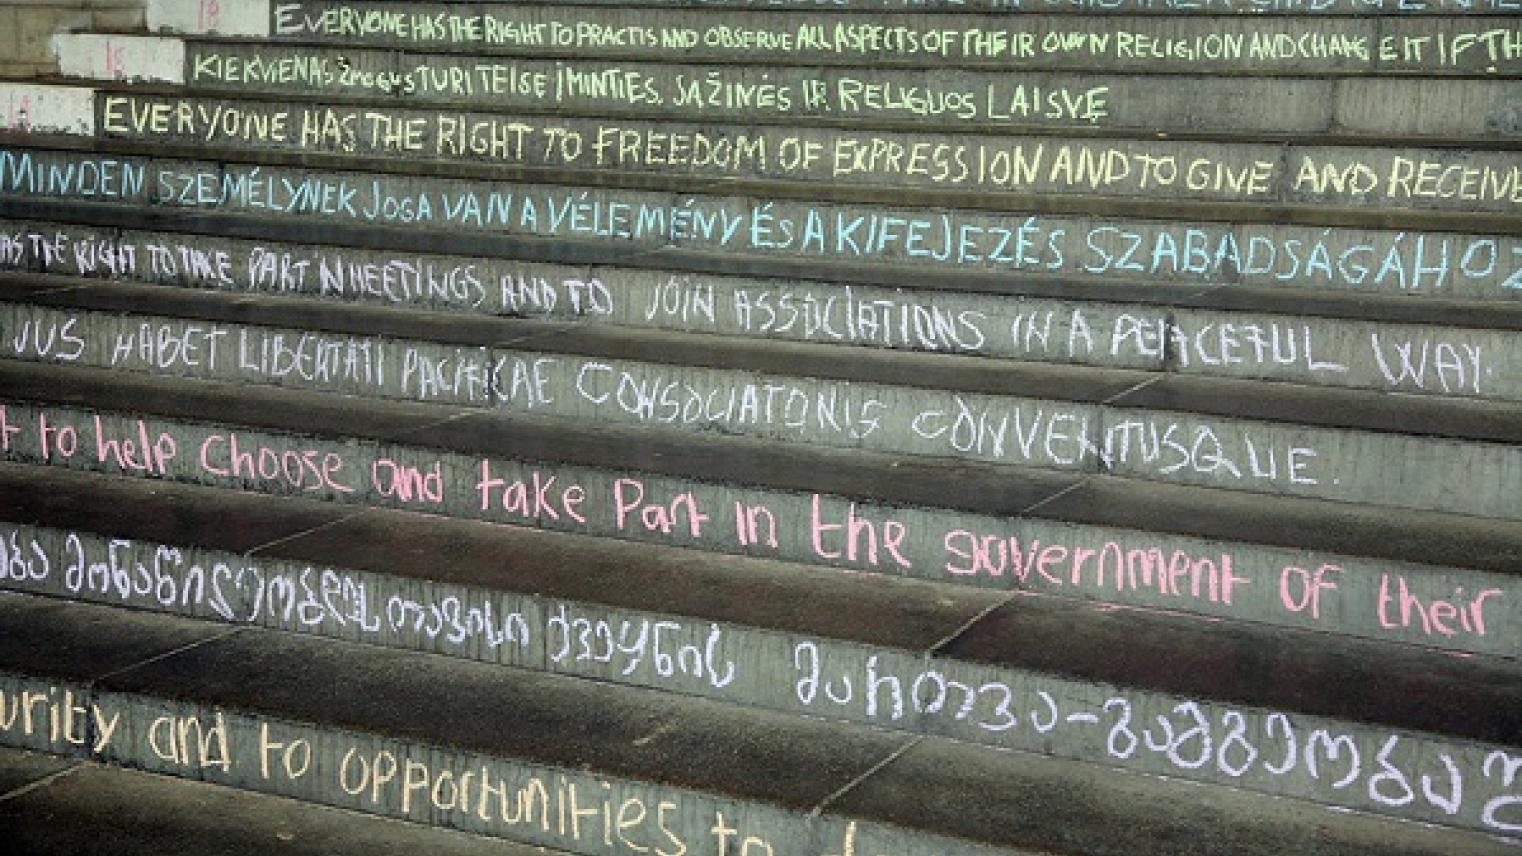 18
EVERYONE HAS THE RIGHT TO PRACTIS AND OBSERVE ALL ASPECTS OF THEIR OWN RELIGION AND CHANGE IT IF TH
KIEKVIENAS ŽMOGUS TURI TEISE Į MINTIES, SĄŽINĖS IR RELIGIJOS LAISVĘ
EVERYONE HAS THE RIGHT TO FREEDOM OF EXPRESSION AND TO GIVE AND RECEIVE
MINDEN SZEMÉLYNEK JOGA VAN A VÉLEMÉNY ÉS A KIFEJEZÉS SZABADSÁGÁHOZ
AS THE RIGHT TO TAKE PART IN MEETINGS AND TO JOIN ASSOCIATIONS IN A PEACEFUL WAY.
JUS HABET LIBERTATI PACIFICAE CONSOCIATONIS CONVENTUSQUE.
t to help choose and take part in the government of their
ება მონაწილეობდეს თავისი ქვეყნის მართვა-გამგეობაშ
urity and to opportunities to